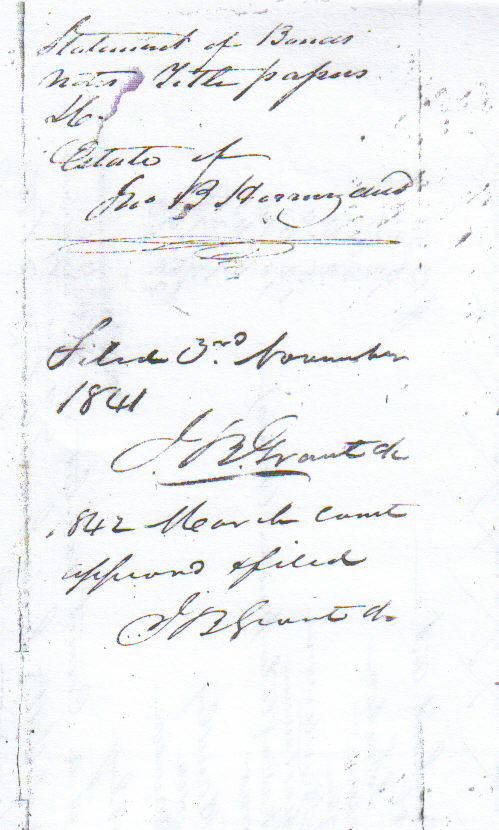 Statement of Bonds
Notes Title papers
&c
Estate of
Jno B.
Filed 3rd November
1841
J. B. Grant ck
1842 March Court
approvd & filed
J B Grant ck